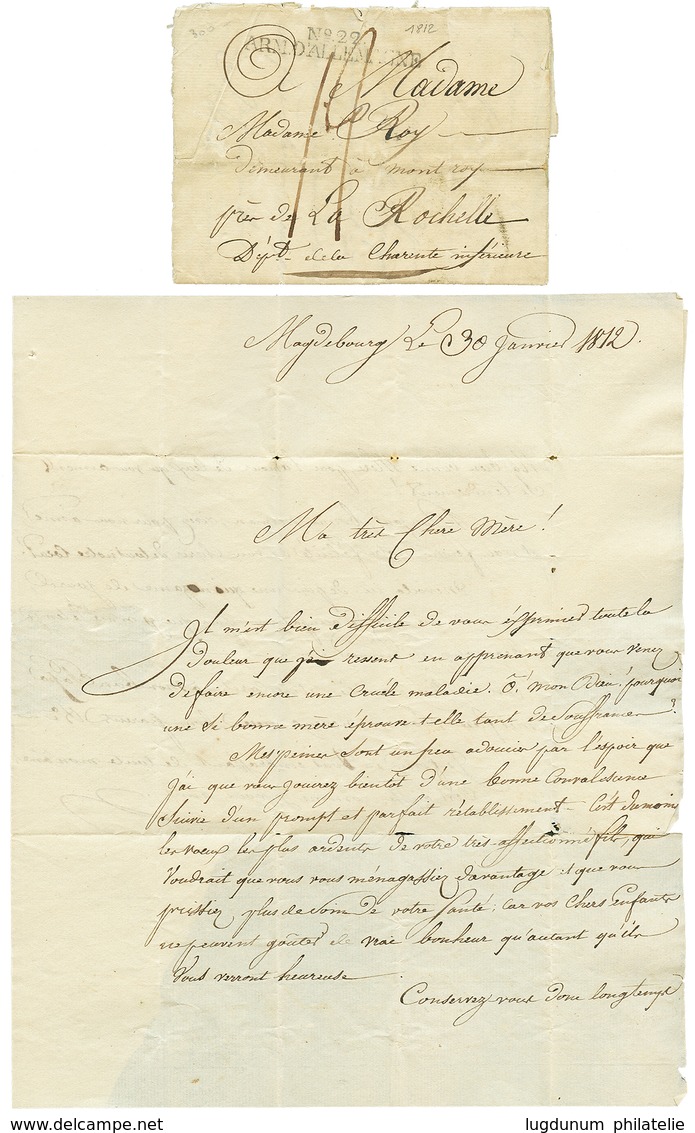 300
1812
No. 22
ARM. D'ALLEMAGNE
A Madame
Madame Roy
demeurant à mont roy
près de La Rochelle
Dépt. de la Charente inférieure
Magdebourg Le 30 Janvier 1812.
Ma très Chère Mère !
Il m'est bien difficile de vous éxprimer toute la
douleur que j'ai ressent en apprenant que vous venez
de faire encore une cruèle maladie. ô, mon Dieu, pourquoi
une si bonne mère éprouve-t-elle tant de Souffrances ?
Mes peines sont un peu adoucies par l'espoir que
j'ai que vous jouirez bientôt d'une bonne Convalessence
Suivie d'un prompt et parfait rétablissement C'est du moins
les vœux les plus ardents de votre très affectionné fils, qui
Voudrait que vous vous ménagassiez davantage et que vous
prissiez plus de Soin de votre Santé ; car vos Chers Enfants
ne peuvent goûter de vrai bonheur qu'autant qu'ils
Vous verront heureuse.
Conservez vous donc longtemps
lugdunum philatelie